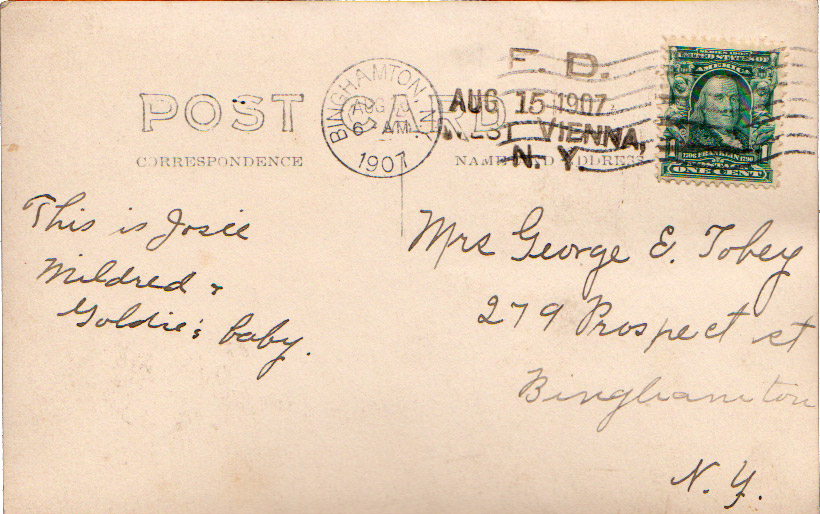 POST CARD
CORRESPONDENCE
NAME AND ADDRESS
BINGHAMTON, N.Y.
AUG
6 AM
1907
F. D.
AUG 15 1907
WEST VIENNA,
N. Y.
UNITED STATES OF
AMERICA
FRANKLIN
ONE CENT
This is Josie
Mildred &
Goldie's baby.
Mrs George E. Tobey
279 Prospect st
Binghamton
N. Y.